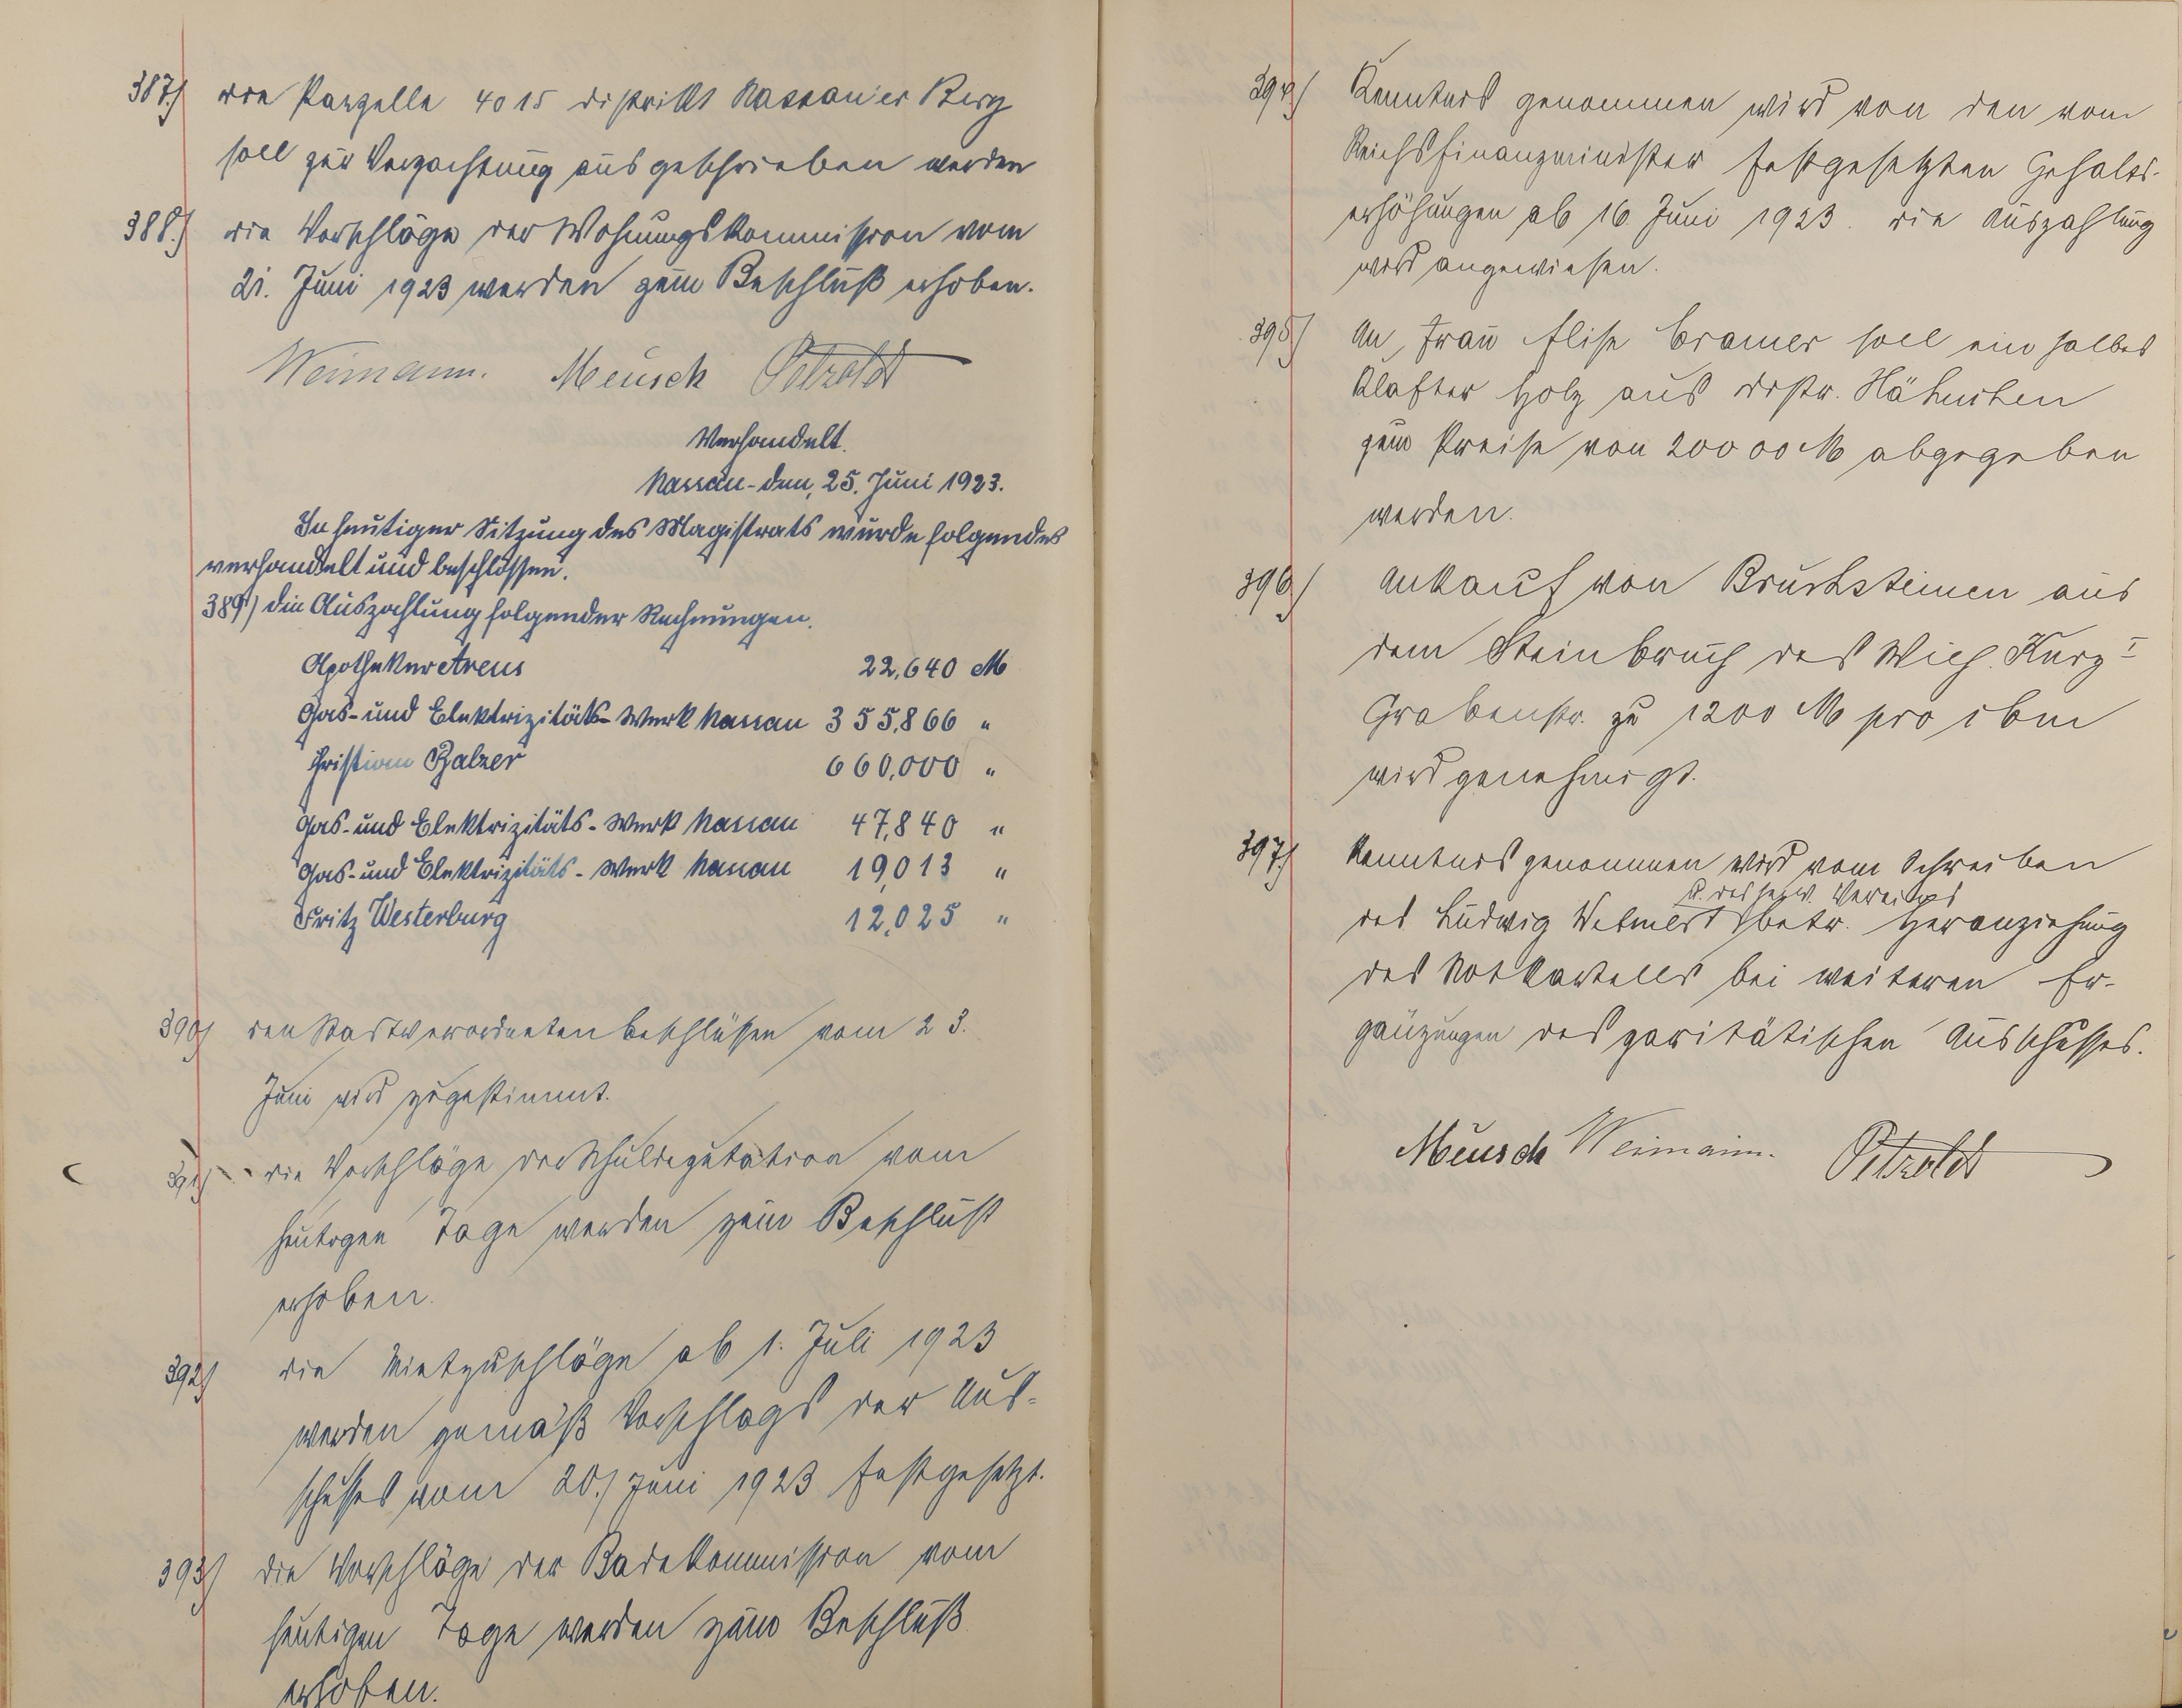 387.) die Parzelle 4015 distrikt Nassauer Berg
soll zur Verpachtung ausgeschrieben werden
388.) die Vorschläge der Wohnungskommission vom
21. Juni 1923 werden zum Beschluß erhoben.
Weimann. Meusch Petzoldt
Verhandelt.
Nassau-den, 25. Juni 1923.
In heutiger Sitzung des Magistrats wurde folgendes
verhandelt und beschlossen.
389.) die Auszahlung folgender Rechnungen.
Apotheker Areus 22,640 M
Gas- und Elektrizitäts-Werk Nassau 355,866 "
Christian Balzer 660,000 "
Gas- und Elektrizitäts-Werk Nassau 47,840 "
Gas- und Elektrizitäts-Werk Nassau 19,013 "
Fritz Westerburg 12,025 "
390) den Stadtverordnetenbeschlüssen vom 23.
Juni wird zugestimmt.
391) die Vorschläge der Schuldeputation vom
heutigen Tage werden zum Beschluß
erhoben.
392) die Mietzuschläge ab 1. Juli 1923
werden gemäß Vorschlags der Aus-
schusses vom 20./Juni 1923 festgesetzt.
393) die Vorschläge der Badekommission vom
heutigen Tage werden zum Beschluß
erhoben.
394) Kenntnis genommen wird von den vom
Reichsfinanzminister festgesetzten Gehalts-
erhöhungen ab 16. Juni 1923. die Auszahlung
wird angewiesen.
395) An Frau Elise Cramer soll ein halbes
Klafter Holz aus distr. Hähnchen
zum Preise von 20000 M abgegeben
werden.
396) Ankauf von Bruchsteinen aus
dem Steinbruch des Wilh. Kurz I
Grabenstr. zu 1200 M pro cbm
wird genehmigt.
397) Kenntnis genommen wird vom Schreiben
u. des Vereins
des Ludwig betr. Heranziehung
des Notkartells bei weiteren Er-
gänzungen des paritätischen Ausschusses.
Meusch Weimann. Petzoldt